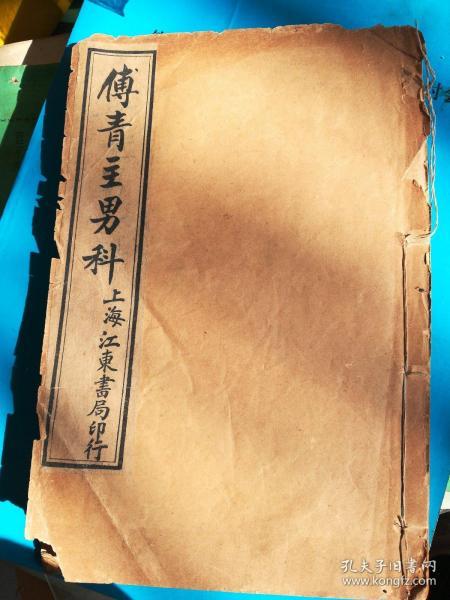 傅青主男科
上海江東書局印行
孔夫子旧书网
www.kongfz.com